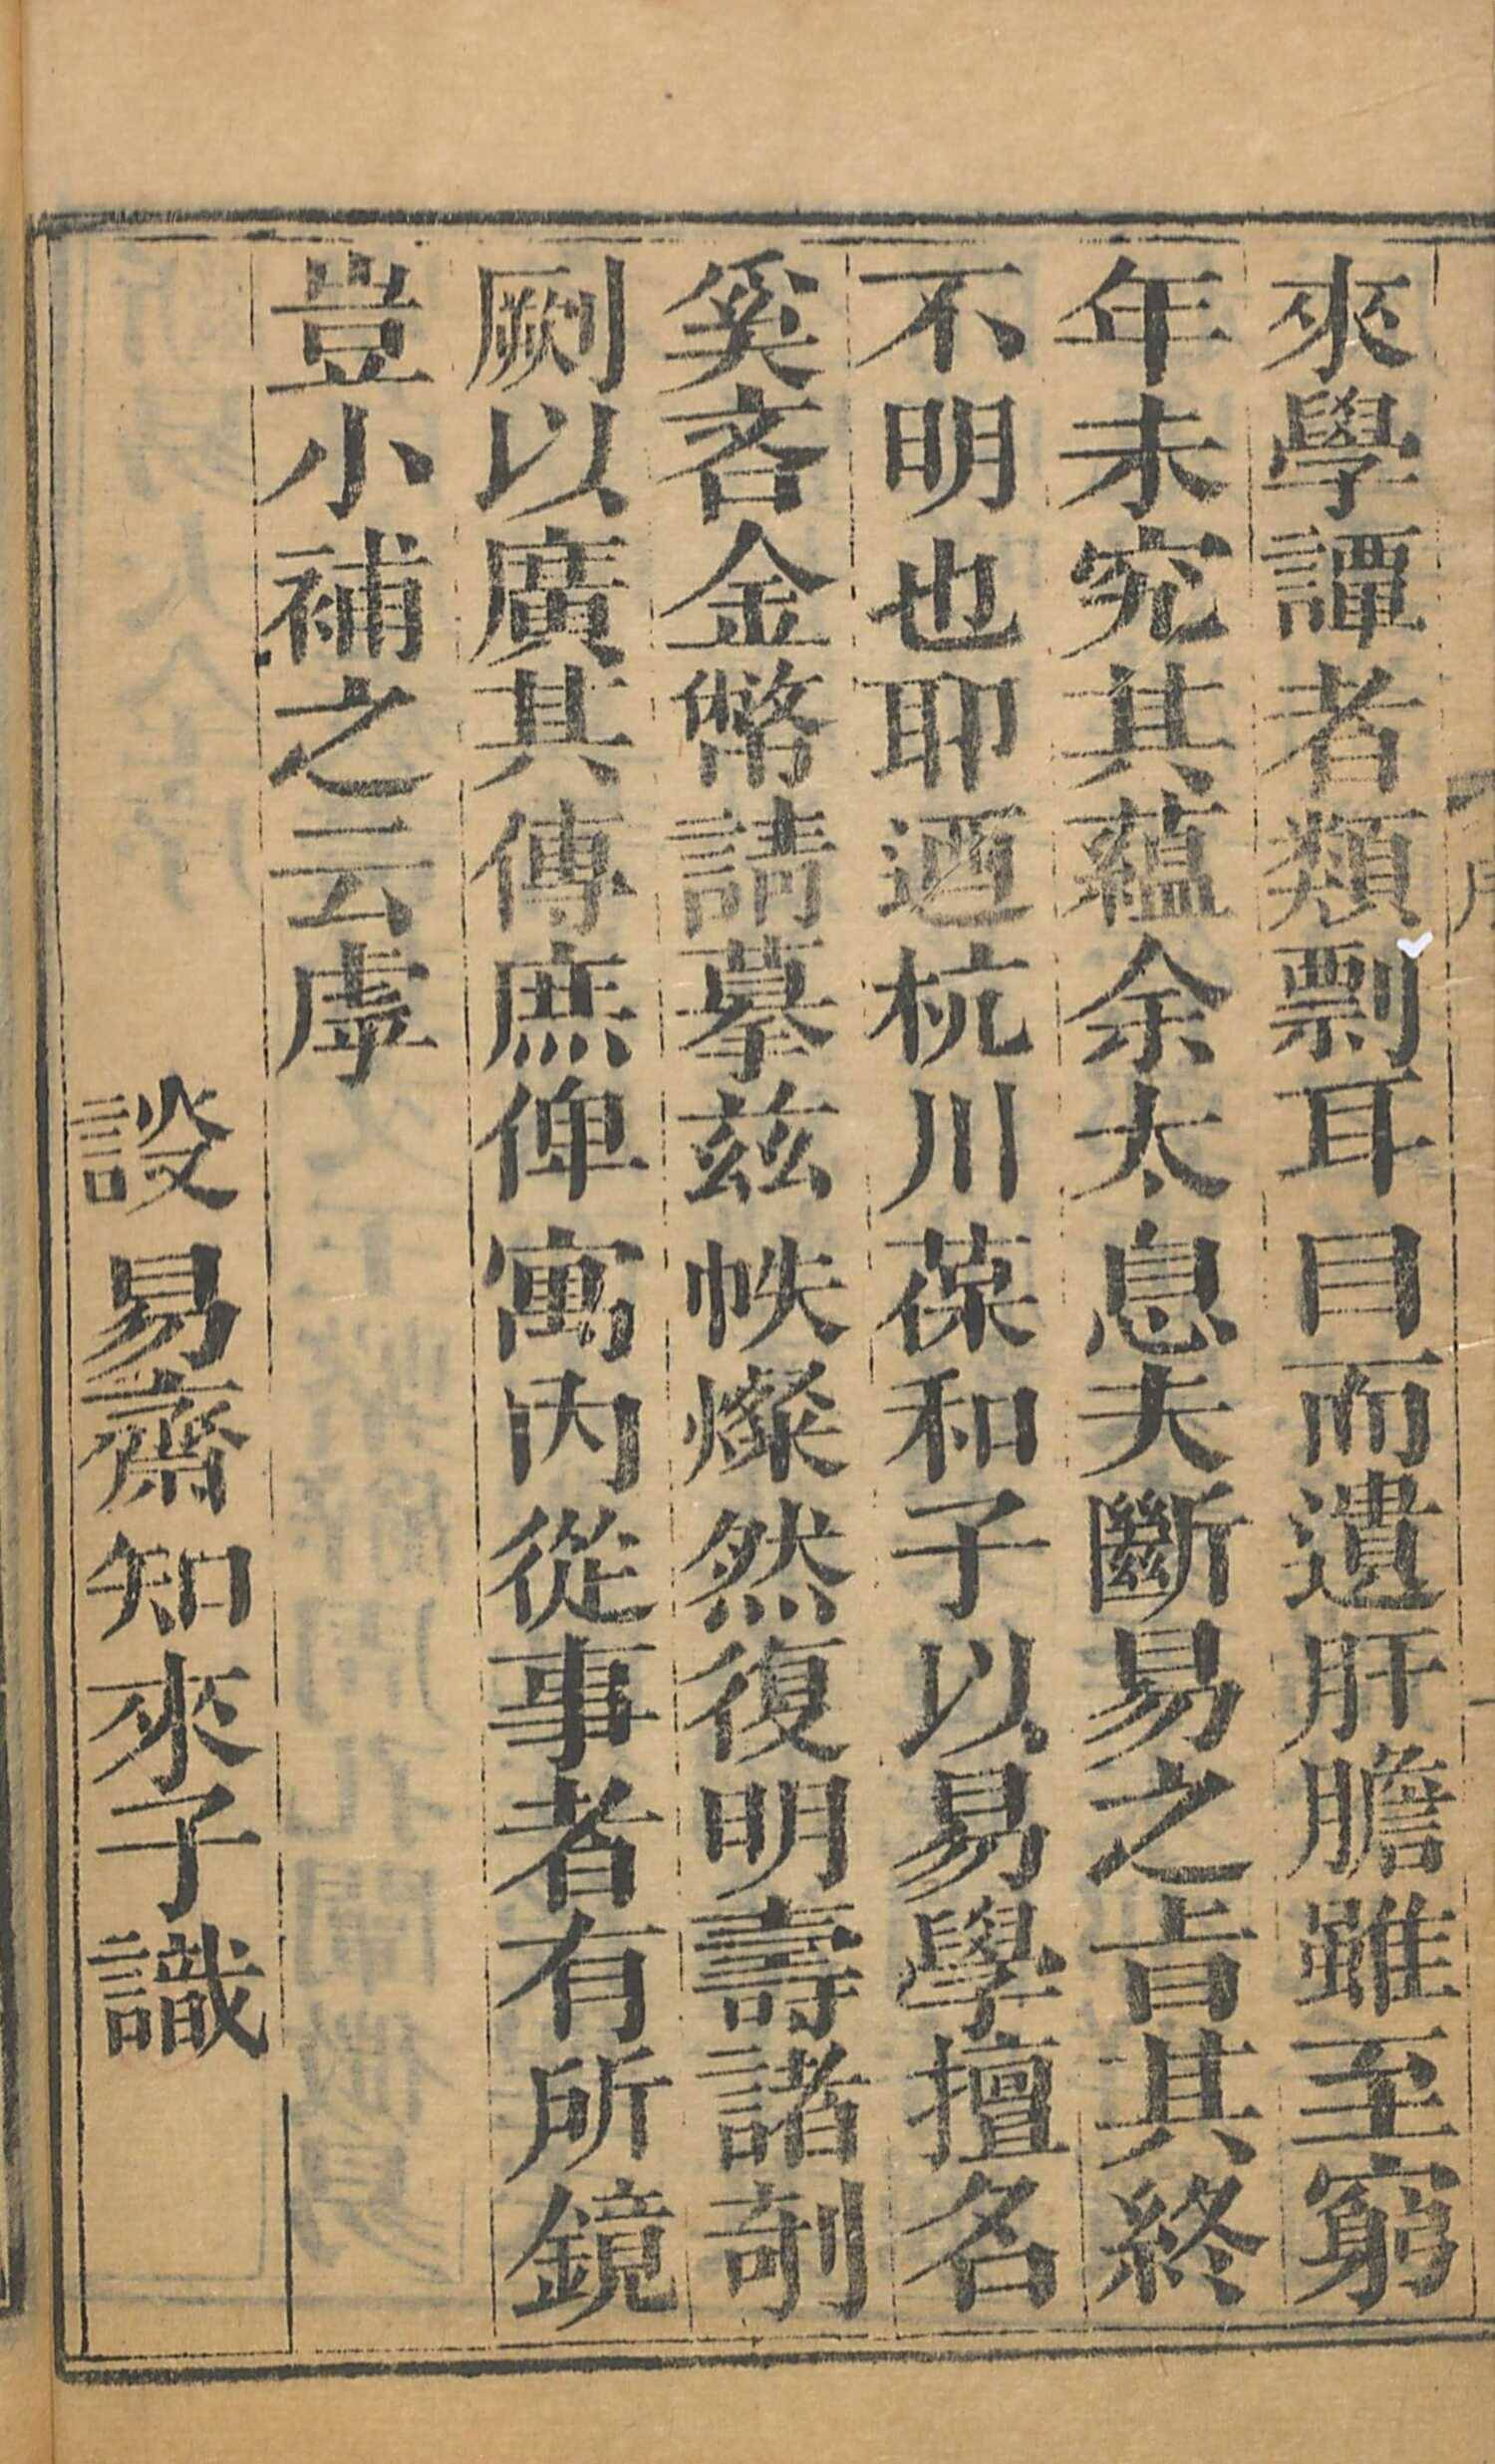 來學譚者類剽耳目而遺肝膽雖至窮
年未究其蘊余太息夫斷易之旨其終
不明也耶迺杭川葆和子以易學擅名
奚吝金幣請摹茲帙燦然復明壽諸剞
劂以廣其傳庶俾寓內從事者有所鏡
豈小補之云虖
談易齋知來子識
序